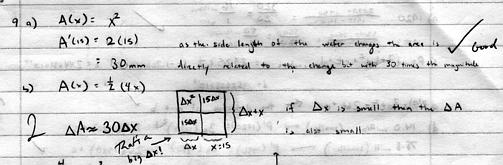 9 a) A(x) = x²
A'(15) = 2(15) as the side length of the wafer changes the area is
= 30 mm directly related to the change but with 30 times the magnitude
Good
b) A(x) = ½ (4x)
Δx² 15Δx
15Δx
Δx+x
if Δx is small then the ΔA
is also small
2
ΔA ≈ 30Δx
That's a
big Δx!
Δx x=15